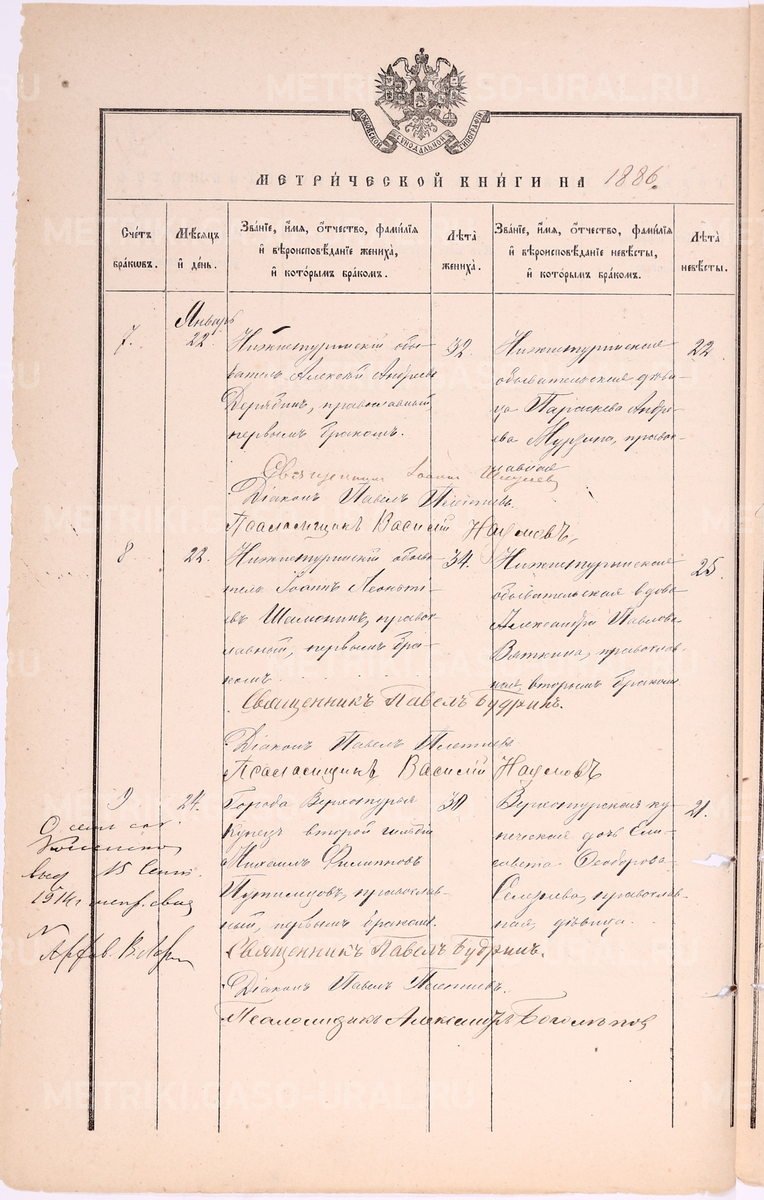 МОСКОВСКОЙ СѴНОДАЛЬНОЙ ТИПОГРАФІИ
МЕТРИ́ЧЕСКОЙ КНИ́ГИ НА 1886.
Сче́тъ бра́кѡвъ.
Мѣ́сяцъ и҆ де́нь.
Зва́нїе, и҆́мя, ѻ҆́тчество, фами́лїя и҆ вѣроисповѣ́данїе жениха̀, и҆ кото́рымъ бра́комъ.
Лѣ́та жениха̀.
Зва́нїе, и҆́мя, ѻ҆́тчество, фами́лїя и҆ вѣроисповѣ́данїе невѣ́сты, и҆ кото́рымъ бра́комъ.
Лѣ́та невѣ́сты.
Январь
7.
22.
Нижнетуринскій обы-
ватель Алексѣй Андреевъ
Дерябинъ, православный,
первымъ бракомъ.
32.
Нижнетуринская
обывательская дѣви-
ца Параскева Андре-
ева Мурзина, право-
славная
22
Священникъ Іоаннъ
Діаконъ Павелъ Плотневъ.
Псаломщикъ Василій Наумовъ.
8
22.
Нижнетуринскій обыва-
тель Іоаннъ Леонтi-
евъ Шамонинъ, правос-
лавный, первымъ бра-
комъ
34.
Нижнетуринская
обывательская вдова
Александра Павлова
Вяткина, православ-
ная, вторымъ бракомъ
25.
Священникъ Павелъ Будринъ.
Діаконъ Павелъ Плотневъ
Псаломщикъ Василій Наумовъ
9
24.
Города Верхотурья
купецъ второй гильдіи
Михаилъ Филипповъ
Путимцовъ, православ-
ный, первымъ бракомъ.
30
Верхотурская ку-
печеская дочь Ели-
савета Ѳеодорова
Селезнева, православ-
ная, дѣвица.
21.
О семъ
выд 15 Сент.
1914 г
Священникъ Павелъ Будринъ.
Діаконъ Павелъ Плотневъ.
Псаломщикъ Александръ Боголѣповъ
METRIKI.GASO-URAL.RU